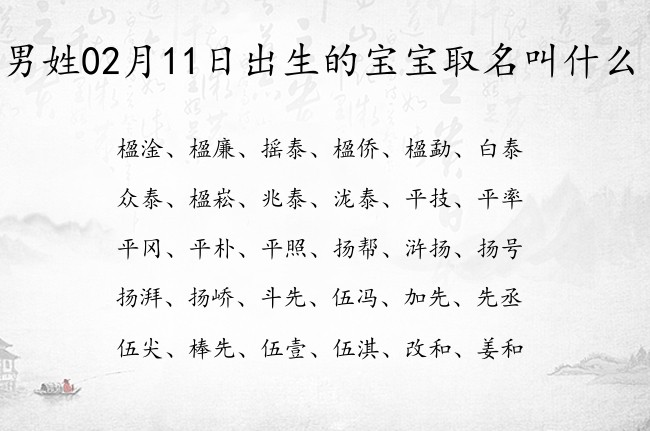 男姓02月11日出生的宝宝取名叫什么
楹淦、楹廉、摇泰、楹侨、楹勐、白泰
众泰、楹崧、兆泰、泷泰、平技、平率
平冈、平朴、平照、扬帮、浒扬、扬号
扬湃、扬峤、斗先、伍冯、加先、先丞
伍尖、棒先、伍壹、伍淇、改和、姜和